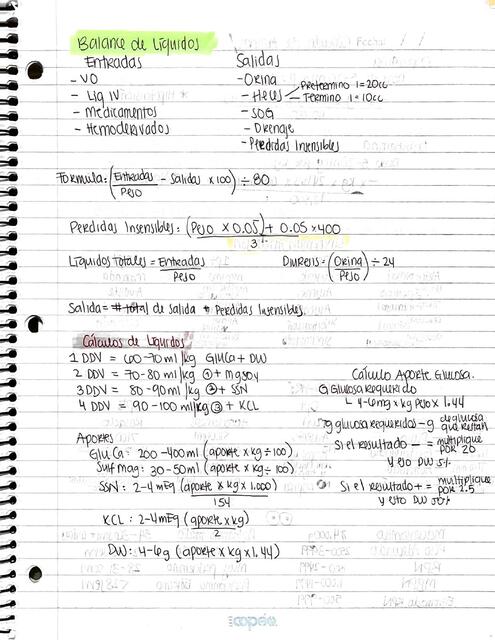 Balance de Líquidos
Entradas
- VO
- Liq IV
- Medicamentos
- Hemoderivados
Salidas
- Orina
- Heces - Pretermino 1=20cc
- Termino 1=10cc
- SOG
- Drenaje
- Perdidas Insensibles
Formula: (Entradas / Peso - Salidas x 100) ÷ 80
Perdidas Insensibles = (Peso x 0.05) + 0.05 x 400
3
Líquidos totales = Entradas / Peso
Diuresis = (Orina / Peso) ÷ 24
Salida = total de salida + Perdidas Insensibles.
Cálculos de Líquidos
1 DDV = 60-70 ml/kg GluCa + DW
2 DDV = 70-80 ml/kg ① + MgSO4
3 DDV = 80-90 ml/kg ② + SSN
4 DDV = 90-100 ml/kg ③ + KCL
Aportes
GluCa = 200-400 ml (aporte x kg ÷ 100)
Sulf mag: 30-50 ml (aporte x kg ÷ 100)
SSN: 2-4 mEq (aporte x kg x 1.000)
154
KCL: 2-4 mEq (aporte x kg)
2
DW: 4-6g (aporte x kg x 1.44)
Cálculo Aporte Glucosa.
G Glucosa Requerido
4-6mg x kg Peso x 1.44
g glucosa requeridos - g de glucosa que restan
Si el resultado - = multiplique por 20
y esto DW 5%
Si el resultado + = multiplique por 2.5
y esto DW 50%
copán